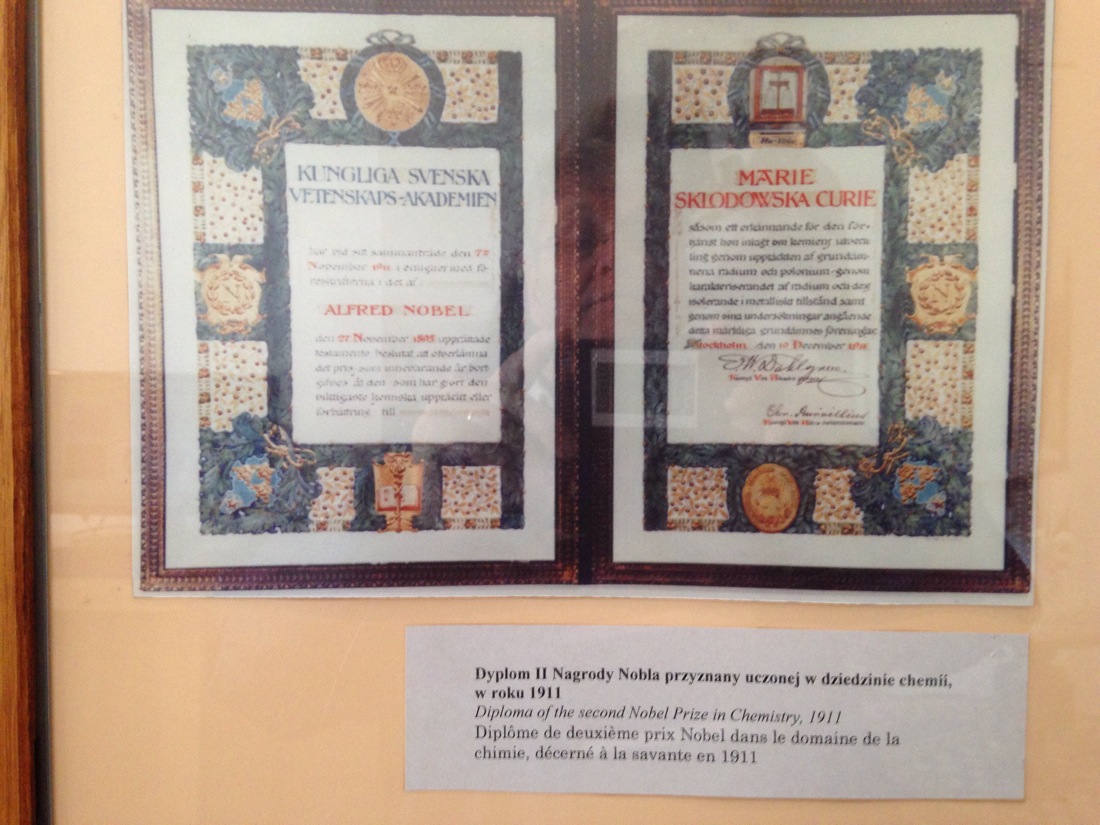 KUNGLIGA SVENSKA
VETENSKAPS-AKADEMIEN
har vid sitt sammanträde den 7
November 1911 i enlighet med fö-
reskrifterna i det af
ALFRED NOBEL
den 27 November 1895 upprättade
testamente beslutat att öfverlämna
det pris som innevarande år bort-
gifves åt den som har gjort den
viktigaste kemiska upptäckt eller
förbättring till
MARIE
SKLODOWSKA CURIE
såsom ett erkännande för den för-
tjänst hon inlagt om kemiens utveck-
ling genom upptäckten af grundäm-
nena radium och polonium genom
karakteriserandet af radium och dess
isolerande i metalliskt tillstånd samt
genom sina undersökningar angående
detta märkliga grundämnes föreningar
Stockholm den 10 December 1911
Dyplom II Nagrody Nobla przyznany uczonej w dziedzinie chemii,
w roku 1911
Diploma of the second Nobel Prize in Chemistry, 1911
Diplôme de deuxième prix Nobel dans le domaine de la
chimie, décerné à la savante en 1911